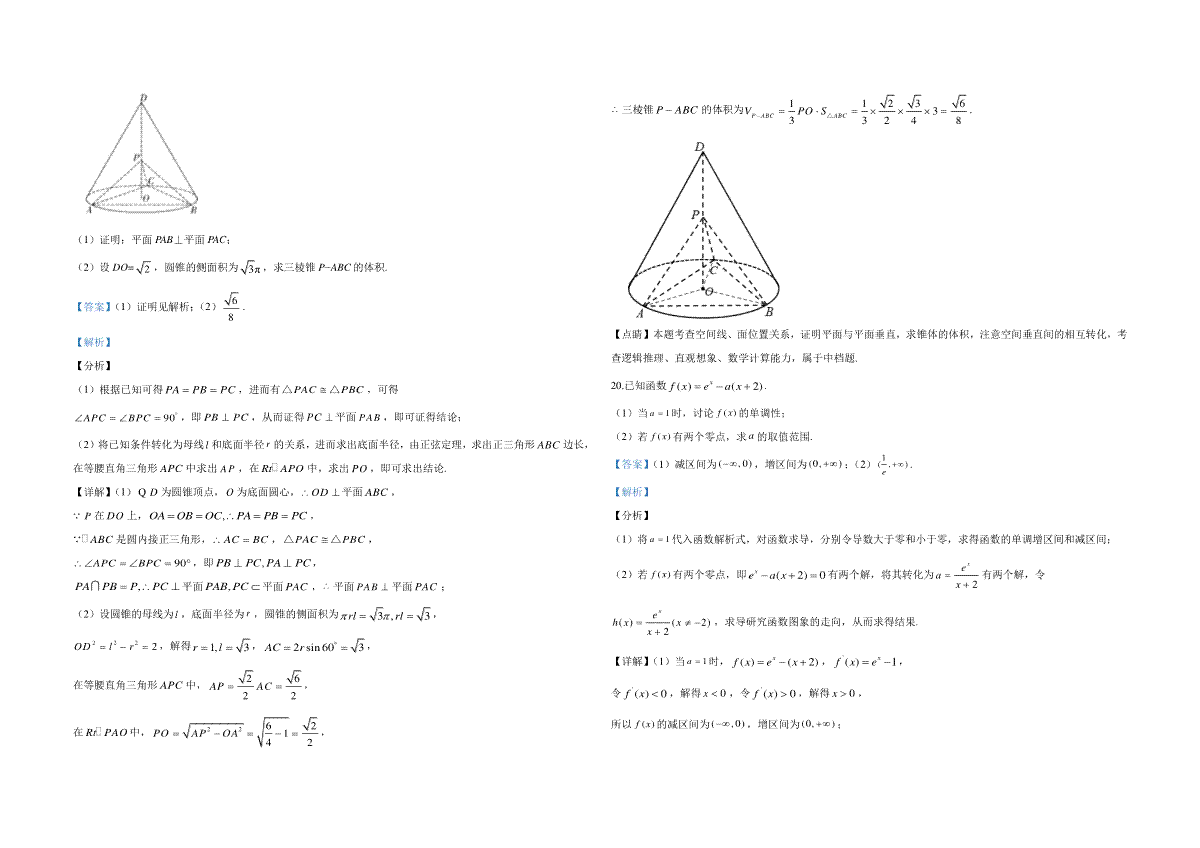 D
P
C
O
A
B
（1）证明：平面 PAB⊥平面 PAC；
（2）设 DO=√2，圆锥的侧面积为√3π，求三棱锥 P−ABC 的体积.
【答案】（1）证明见解析；（2）√6/8.
【解析】
【分析】
（1）根据已知可得 PA = PB = PC，进而有△PAC ≅ △PBC，可得
∠APC = ∠BPC = 90°，即 PB ⊥ PC，从而证得 PC ⊥ 平面 PAB，即可证得结论；
（2）将已知条件转化为母线 l 和底面半径 r 的关系，进而求出底面半径，由正弦定理，求出正三角形 ABC 边长，
在等腰直角三角形 APC 中求出 AP，在 Rt□ APO 中，求出 PO，即可求出结论.
【详解】（1）Q D 为圆锥顶点，O 为底面圆心，∴ OD ⊥ 平面 ABC，
∵ P 在 DO 上，OA = OB = OC,∴ PA = PB = PC，
∵□ ABC 是圆内接正三角形，∴ AC = BC，△PAC ≅ △PBC，
∴ ∠APC = ∠BPC = 90°，即 PB ⊥ PC, PA ⊥ PC，
PA⋂PB = P,∴ PC ⊥ 平面 PAB, PC ⊂ 平面 PAC，∴ 平面 PAB ⊥ 平面 PAC；
（2）设圆锥的母线为 l，底面半径为 r，圆锥的侧面积为 πrl = √3π, rl = √3，
OD² = l² − r² = 2，解得 r = 1, l = √3，AC = 2r sin 60° = √3，
在等腰直角三角形 APC 中，AP = √2/2 AC = √6/2，
在 Rt□ PAO 中，PO = √(AP² − OA²) = √(6/4 − 1) = √2/2，
∴ 三棱锥 P − ABC 的体积为 V_{P−ABC} = 1/3 PO · S_{△ABC} = 1/3 × √2/2 × √3/4 × 3 = √6/8.
D
P
C
O
A
B
【点睛】本题考查空间线、面位置关系，证明平面与平面垂直，求锥体的体积，注意空间垂直间的相互转化，考
查逻辑推理、直观想象、数学计算能力，属于中档题.
20.已知函数 f(x) = eˣ − a(x + 2).
（1）当 a = 1 时，讨论 f(x) 的单调性；
（2）若 f(x) 有两个零点，求 a 的取值范围.
【答案】（1）减区间为 (−∞, 0)，增区间为 (0, +∞)；（2）(1/e, +∞).
【解析】
【分析】
（1）将 a = 1 代入函数解析式，对函数求导，分别令导数大于零和小于零，求得函数的单调增区间和减区间；
（2）若 f(x) 有两个零点，即 eˣ − a(x + 2) = 0 有两个解，将其转化为 a = eˣ/(x + 2) 有两个解，令
h(x) = eˣ/(x + 2) (x ≠ −2)，求导研究函数图象的走向，从而求得结果.
【详解】（1）当 a = 1 时，f(x) = eˣ − (x + 2)，f'(x) = eˣ − 1，
令 f'(x) < 0，解得 x < 0，令 f'(x) > 0，解得 x > 0，
所以 f(x) 的减区间为 (−∞, 0)，增区间为 (0, +∞)；